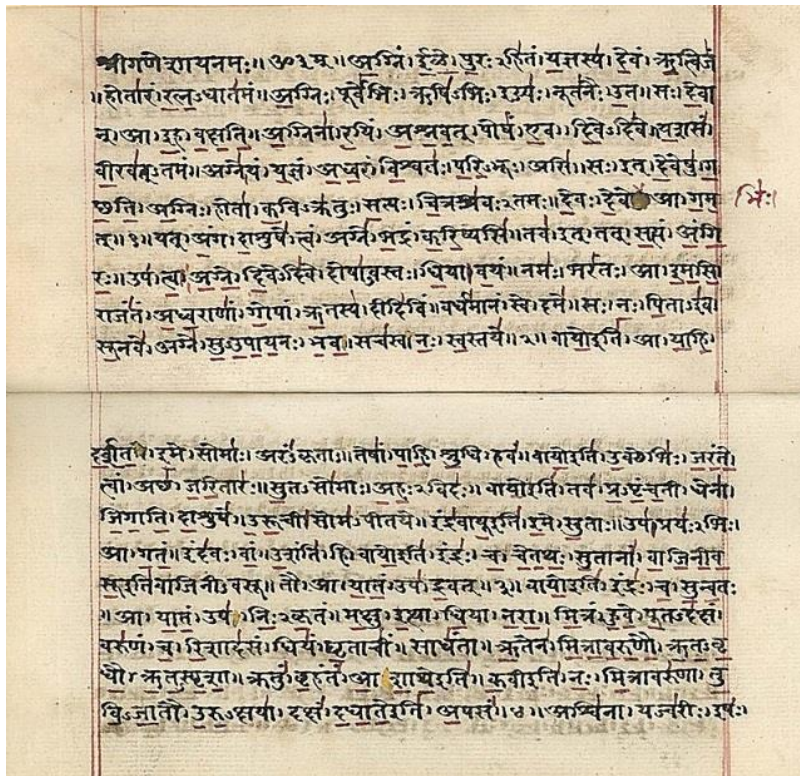 श्रीगणेशायनमः॥ॐ३म्॥अग्निं।ईळे।पुरःऽहितं।यज्ञस्य।देवं।ऋत्विजं
॥होतारं।रत्नऽधातमं॥अग्निः।पूर्वेभिः।ऋषिऽभिः।ईड्यः।नूतनैः।उत॥सः।देवा
न्।आ।इह।वक्षति॥अग्निना।रयिं।अश्नवत्।पोषं।एव।दिवेऽदिवे॥यशसं
वीरवत्ऽतमं॥अग्ने।यं।यज्ञं।अध्वरं।विश्वतः।परिऽभूः।असि॥सः।इत्।देवेषु।ग
च्छति।अग्निः।होता।कविऽक्रतुः।सत्यः।चित्रश्रवःऽतमः॥देवः।देवे।आ।गम भिः।
त्॥१॥यत्।अंग।दाशुषे।त्वं।अग्ने।भद्रं।करिष्यसि॥तव।इत्।तत्।सत्यं।अंगि
रः॥उप।त्वा।अग्ने।दिवेऽदिवे।दोषाऽवस्तः।धिया।वयं॥नमः।भरंतः।आ।इमसि
राजंतं।अध्वराणां।गोपां।ऋतस्य।दीदिविं॥वर्धमानं।स्वे।दमे॥सः।नः।पिताऽइव
सूनवे।अग्ने।सुऽउपायनः।भव॥सचस्व।नः।स्वस्तये॥२॥वायोइति।आ।याहि।
दर्शत।इमे।सोमाः।अरंऽकृताः॥तेषां।पाहि।श्रुधि।हवं॥वायोइति।उक्थेभिः।जरंते।
त्वां।अच्छ।जरितारः॥सुतऽसोमाः।अहःऽविदः॥वायोइति।तव।प्रऽपृंचती।धेना।
जिगाति।दाशुषे॥उरूची।सोमऽपीतये॥इंद्रवायूइति।इमे।सुताः॥उप।प्रयःऽभिः।
आ।गतं॥इंदवः।वां।उशंति।हि॥वायोइति।इंद्रः।च।चेतथः।सुतानां।वाजिनीव
सूइतिवाजिनीऽवसू॥तौ।आ।यातं।उप।द्रवत्॥३॥वायोइति।इंद्रः।च।सुन्वतः
॥आ।यातं।उप।निःऽकृतं॥मक्षु।इत्था।धिया।नरा॥मित्रं।हुवे।पूतऽदक्षं
वरुणं।च।रिशादसं॥धियं।घृताचीं।साधंता॥ऋतेन।मित्रावरुणौ।ऋतऽवृ
धौ।ऋतऽस्पृशा॥क्रतुं।बृहंतं।आशाथेइति॥कवीइति।नः।मित्रावरुणा।तु
विऽजातौ।उरुऽक्षया॥दक्षं।दधातेइति।अपसं॥४॥अश्विना।यज्वरीः।इषः।